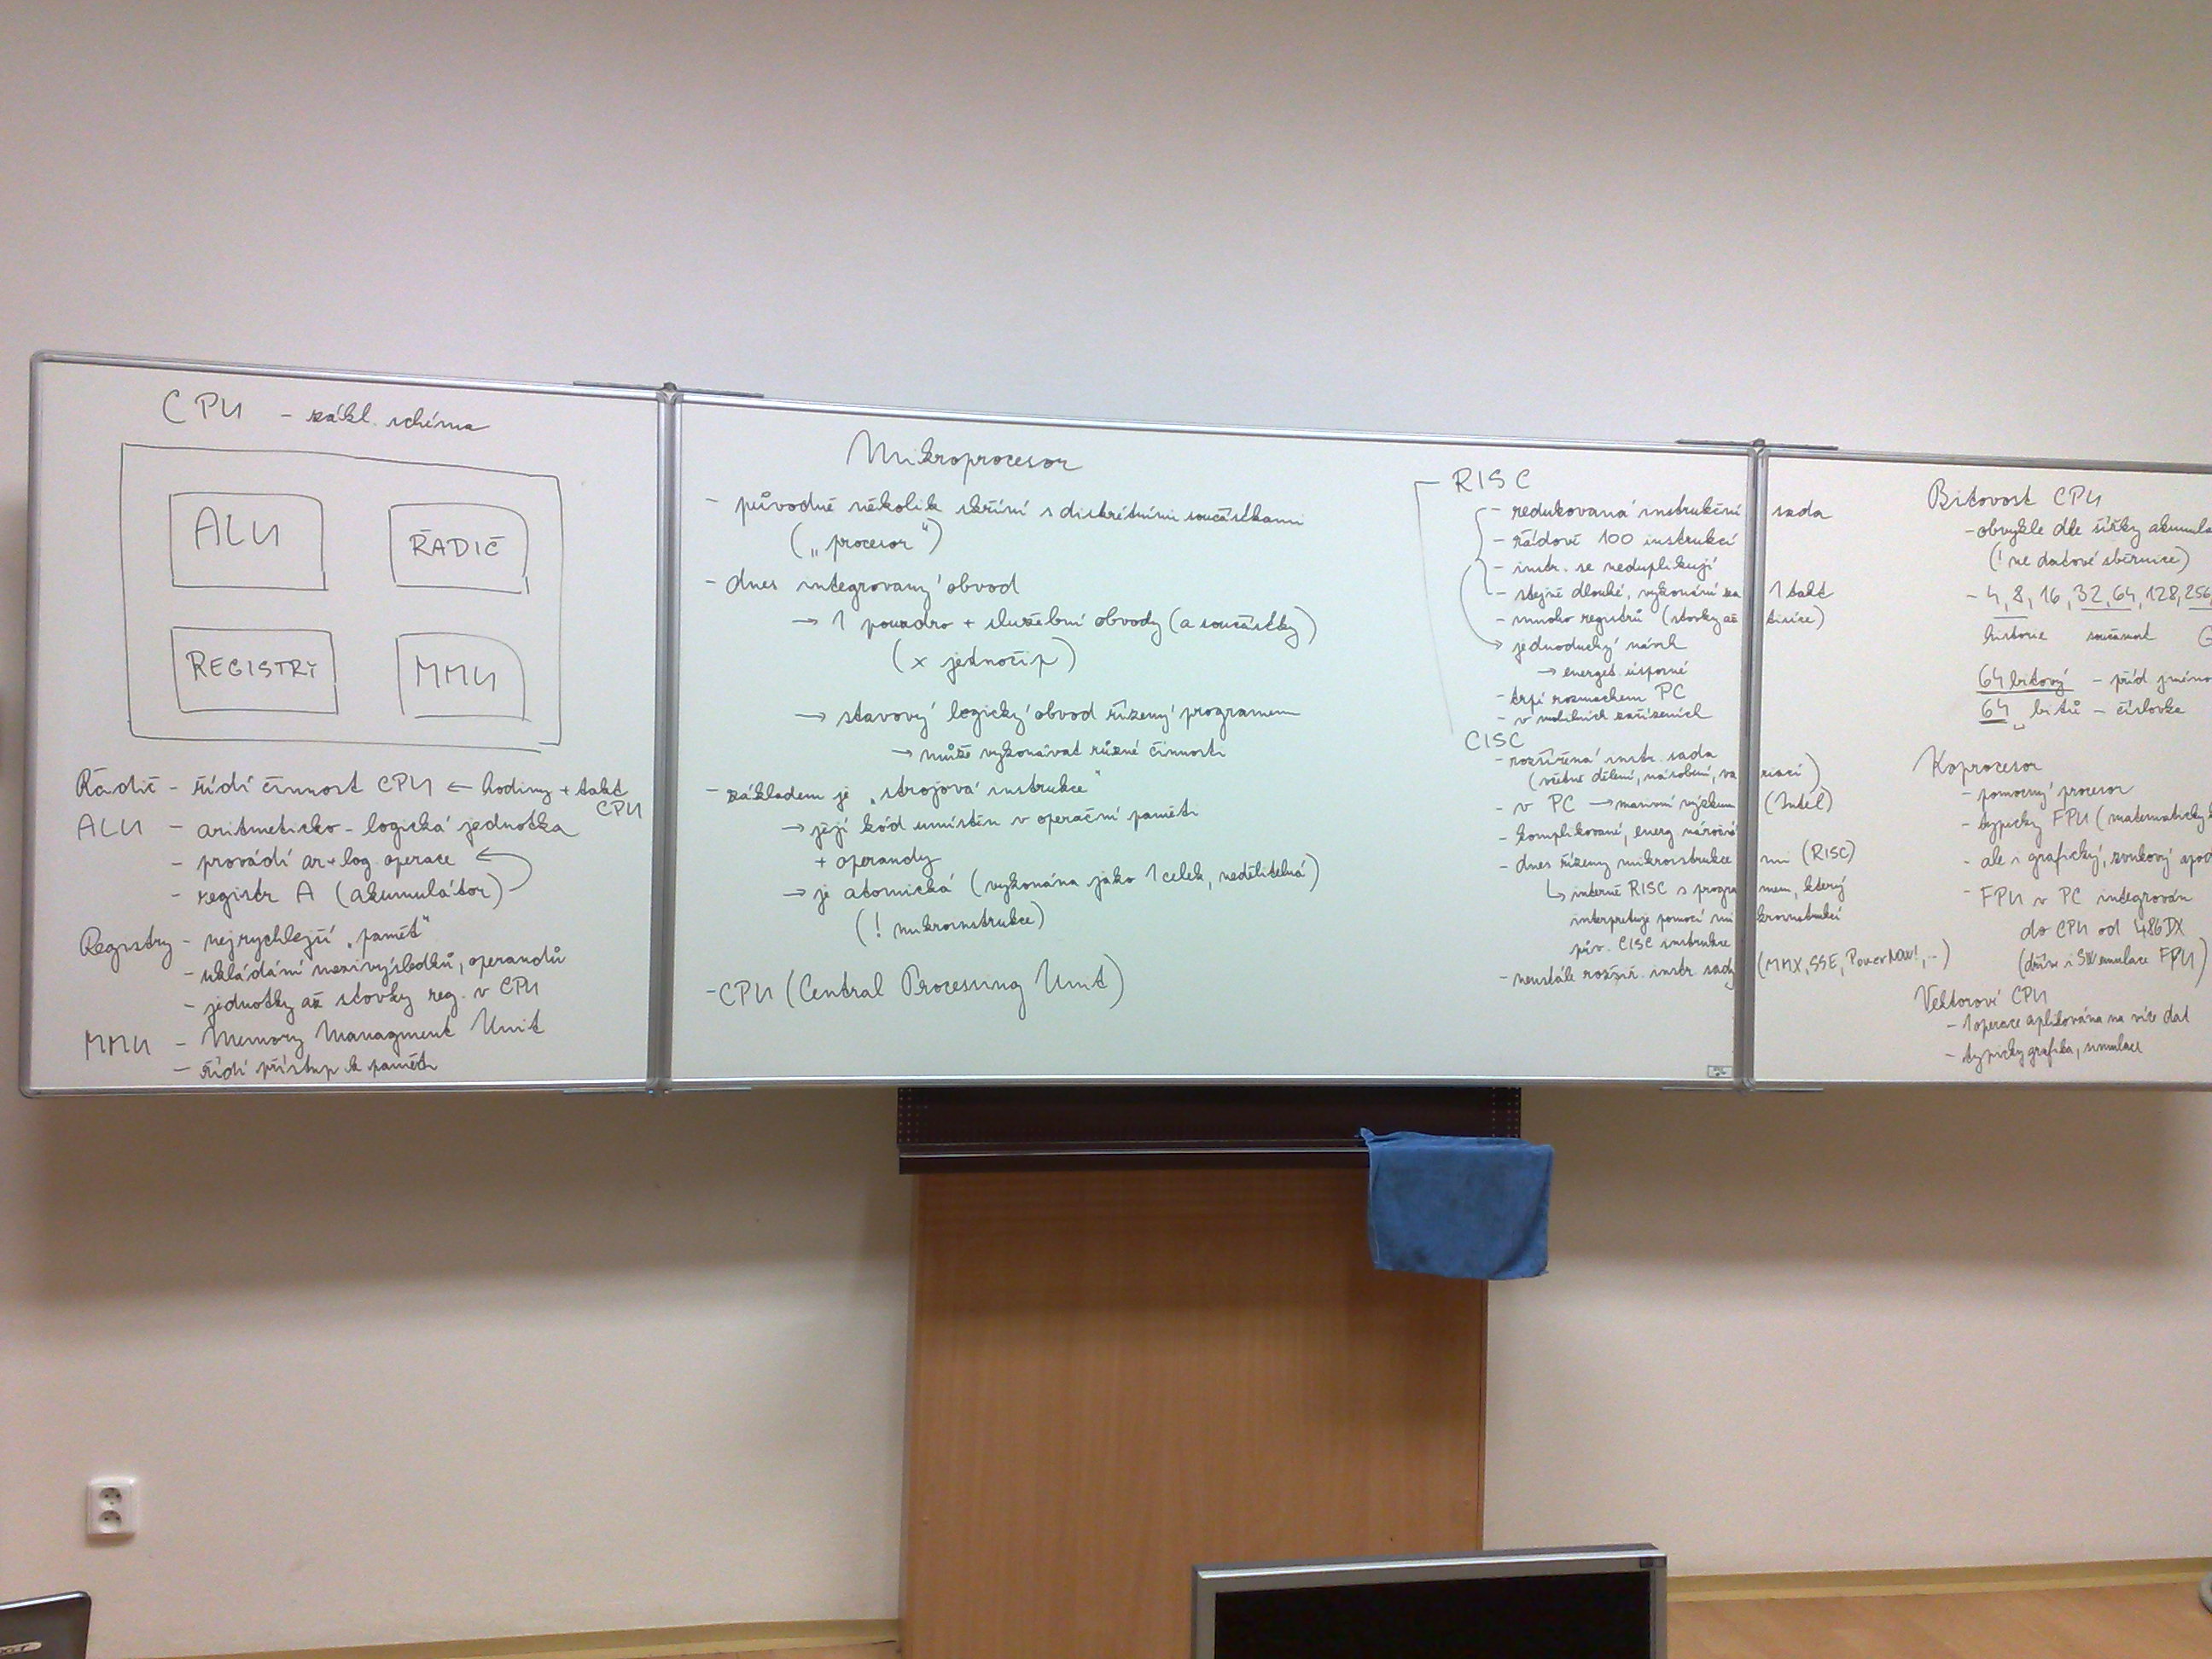 CPU - zákl. schéma
ALU
ŘADIČ
REGISTRY
MMU
Řadič - řídí činnost CPU ← hodiny + takt
CPU
ALU - aritmeticko-logická jednotka
- provádí ar+log. operace
- registr A (akumulátor)
Registry - nejrychlejší „paměť"
- ukládání mezivýsledků, operandů
- jednotky až stovky reg. v CPU
MMU - Memory Managment Unit
- řídí přístup k paměti
Mikroprocesor
- původně několik skříní s diskrétními součástkami
(„procesor")
- dnes integrovaný obvod
→ 1 pouzdro + služební obvody (a součástky)
(x jednočip)
→ stavový logický obvod řízený programem
→ může vykonávat různé činnosti
- základem je „strojová instrukce"
→ její kód umístěn v operační paměti
+ operandy
→ je atomická (vykonána jako 1 celek, nedělitelná)
(! mikroinstrukce)
- CPU (Central Processing Unit)
RISC
- redukovaná instrukční sada
- řádově 100 instrukcí
- instr. se neduplikují
- stejně dlouhé, vykonání za 1 takt
- mnoho registrů (stovky až tisíce)
→ jednoduchý návrh
→ energet. úsporné
- trpí rozmachem PC
- v mobilních zařízeních
CISC
- rozšířená instr. sada
(včetně dělení, násobení, variací)
- v PC → masivní výzkum (Intel)
- komplikované, energ. náročné
- dnes řízeny mikroinstrukcemi (RISC)
↳ interně RISC s programem, který
interpretuje pomocí mikroinstrukcí
pův. CISC instrukce
- neustále rozšiř. instr. sady (MMX, SSE, PowerNow!, ..)
Bitovost CPU
- obvykle dle šířky akumula
(! ne datové sběrnice)
- 4, 8, 16, 32, 64, 128, 256
historie současnost G
64bitový - příd. jméno
64 bitů - číslovka
Koprocesor
- pomocný procesor
- typicky FPU (matematický
- ale i grafický, zvukový apod
- FPU v PC integrován
do CPU od 486DX
(dříve i SW emulace FPU)
Vektorové CPU
- 1 operace aplikována na více dat
- typicky grafika, simulace